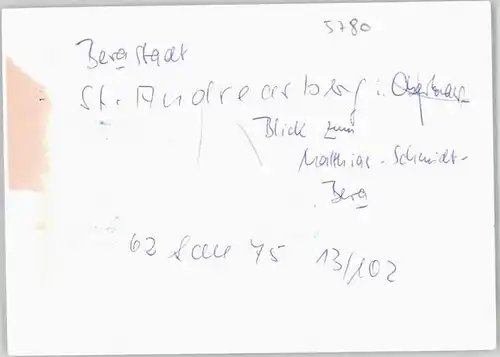 5780
Bergstadt
St. Andreasberg i. Oberharz
Blick zum
Matthias-Schmidt-
Berg
62 Sau 75 13/102